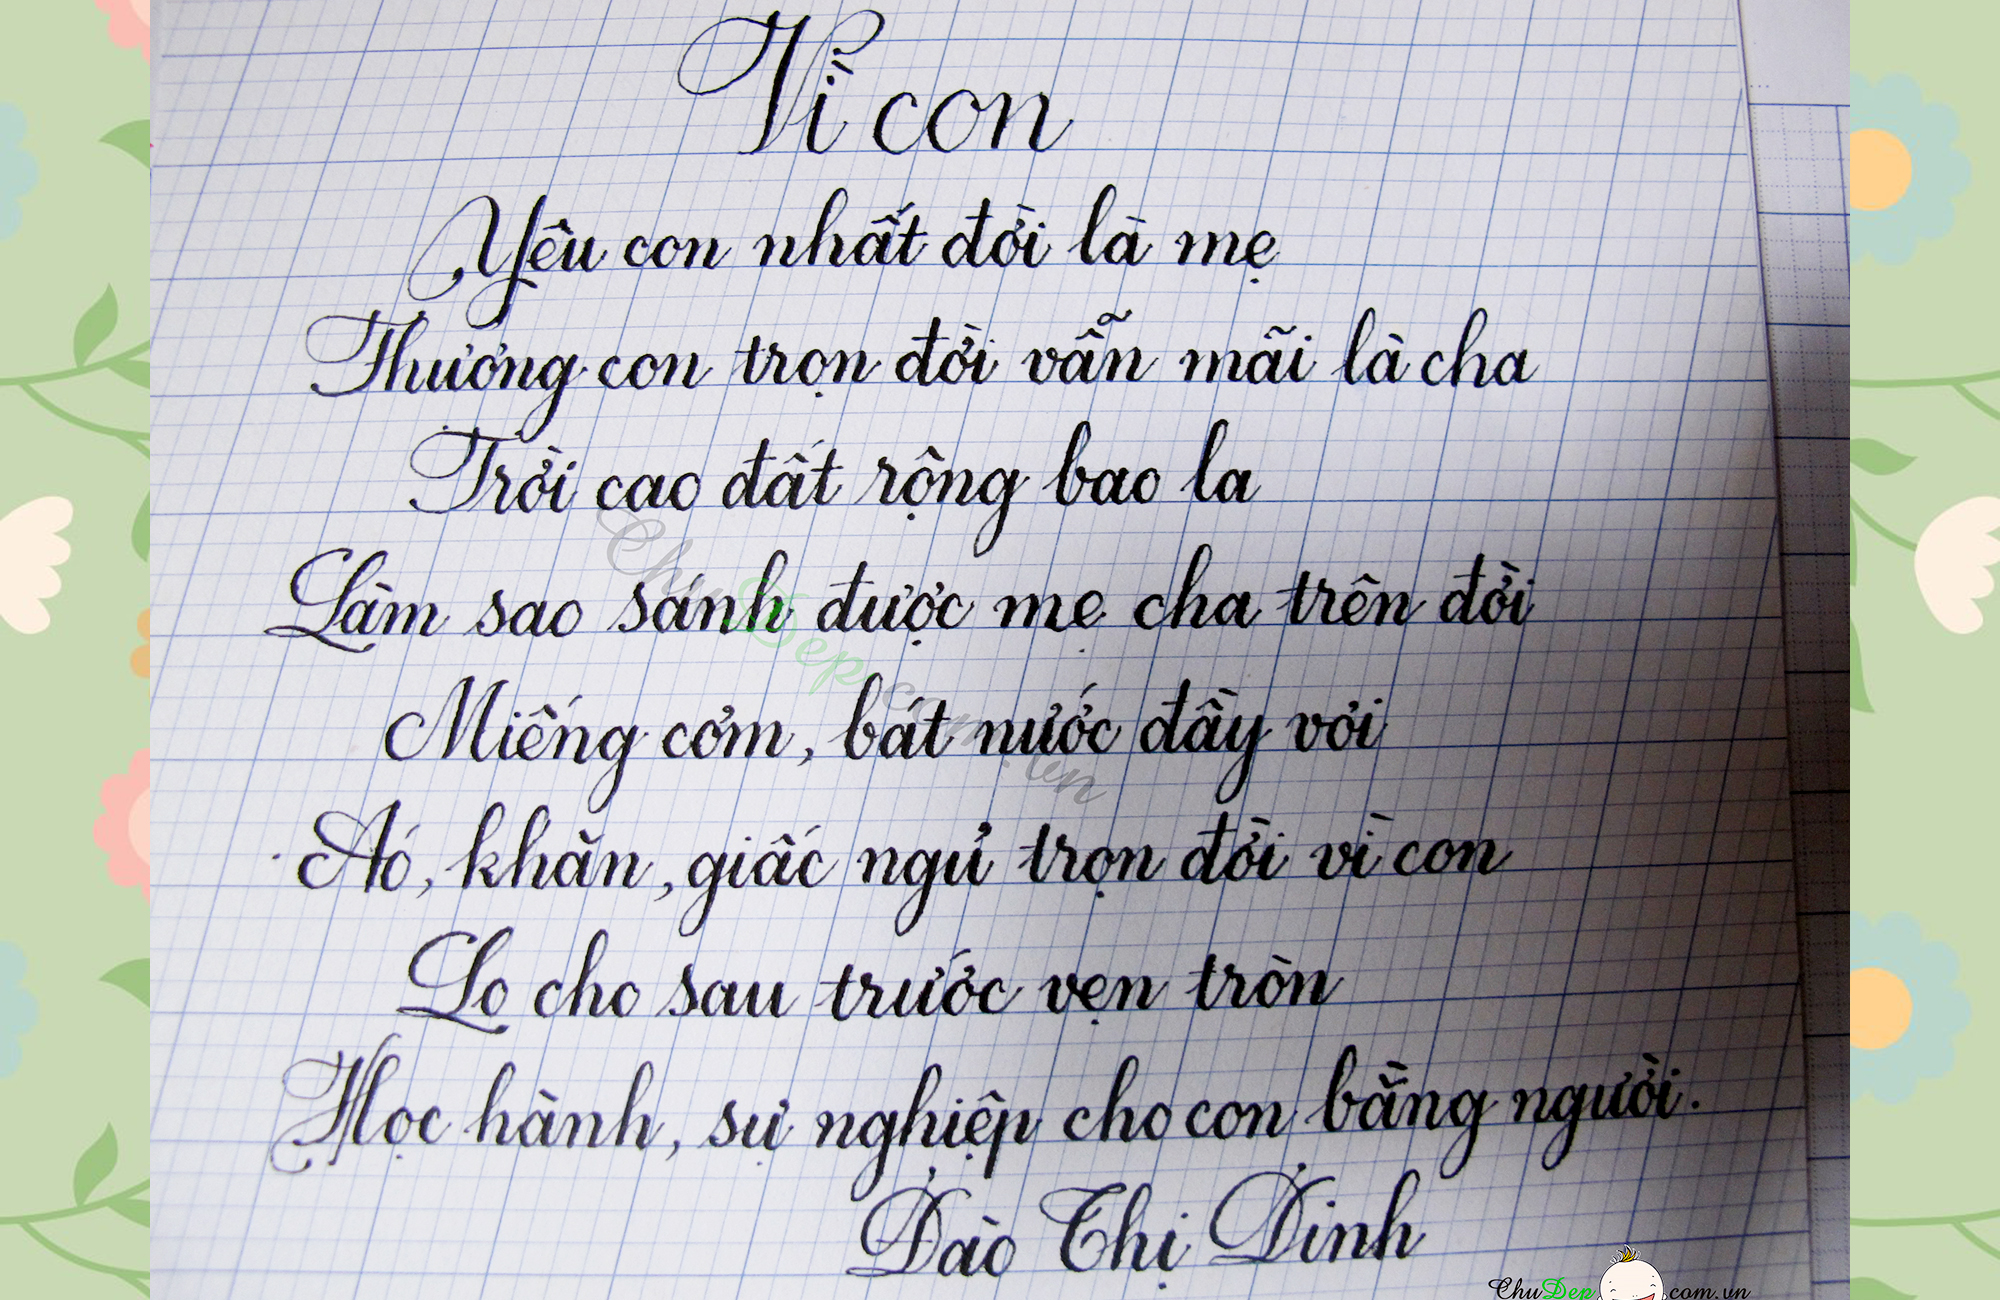 Vì con
Yêu con nhất đời là mẹ
Thương con trọn đời vẫn mãi là cha
Trời cao đất rộng bao la
Làm sao sánh được mẹ cha trên đời
Miếng cơm, bát nước đầy vơi
Áo, khăn, giấc ngủ trọn đời vì con
Lo cho sau trước vẹn tròn
Học hành, sự nghiệp cho con bằng người.
Đào Thị Đinh
ChuDep.com.vn
ChuDep.com.vn